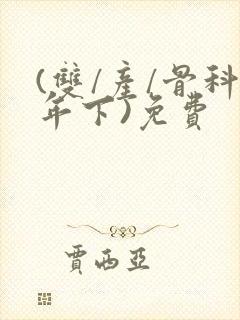 (雙/産/骨科
年下)免費
賈西亞